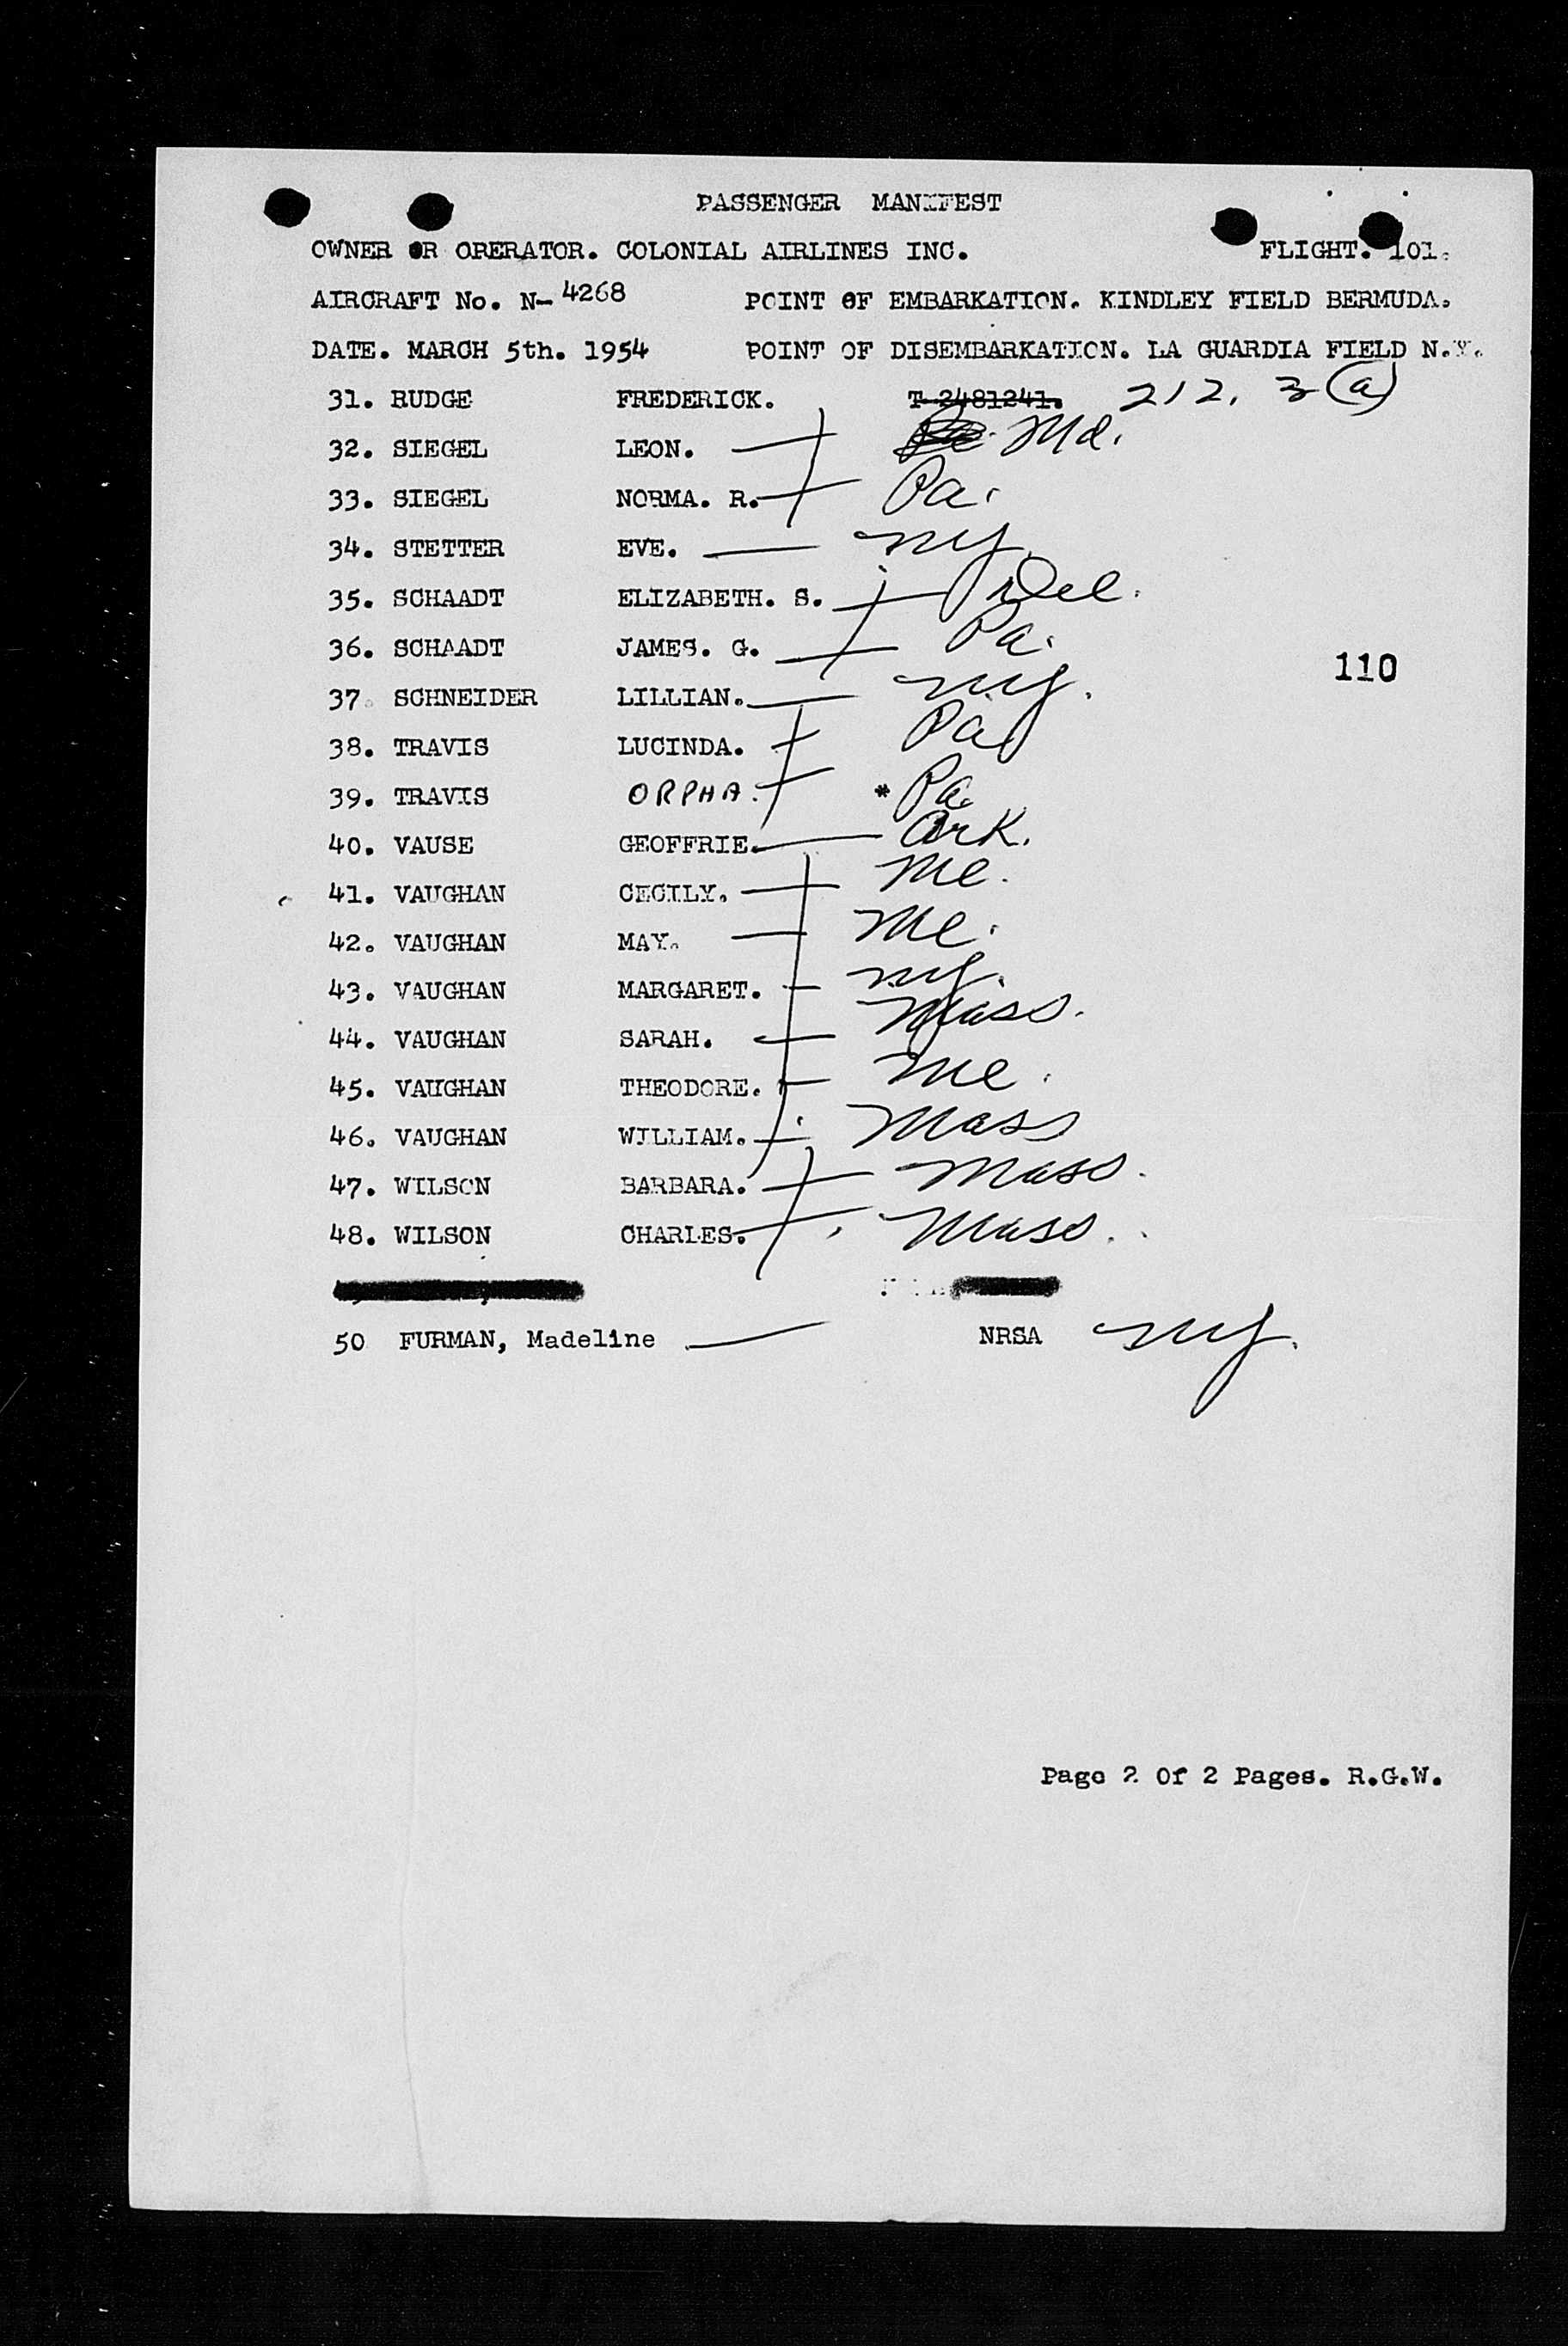 PASSENGER MANIFEST
OWNER OR ORERATOR. COLONIAL AIRLINES INC. FLIGHT. 101.
AIRCRAFT No. N- 4268 POINT OF EMBARKATION. KINDLEY FIELD BERMUDA.
DATE. MARCH 5th. 1954 POINT OF DISEMBARKATION. LA GUARDIA FIELD N.Y.
31. RUDGE FREDERICK. T-2481241. 212. 3(a)
32. SIEGEL LEON. Md.
33. SIEGEL NORMA. R. Pa.
34. STETTER EVE. ny.
35. SCHAADT ELIZABETH. S. Del.
36. SCHAADT JAMES. G. Pa.
110
37. SCHNEIDER LILLIAN. ny.
38. TRAVIS LUCINDA. Pa
39. TRAVIS ORPHA. * Pa.
40. VAUSE GEOFFRIE. Ark.
41. VAUGHAN CECILY. Me.
42. VAUGHAN MAY. Me.
43. VAUGHAN MARGARET. ny.
44. VAUGHAN SARAH. Mass.
45. VAUGHAN THEODORE. Me.
46. VAUGHAN WILLIAM. Mass
47. WILSON BARBARA. Mass.
48. WILSON CHARLES. Mass.
50 FURMAN, Madeline NRSA ny.
Page 2 Of 2 Pages. R.G.W.